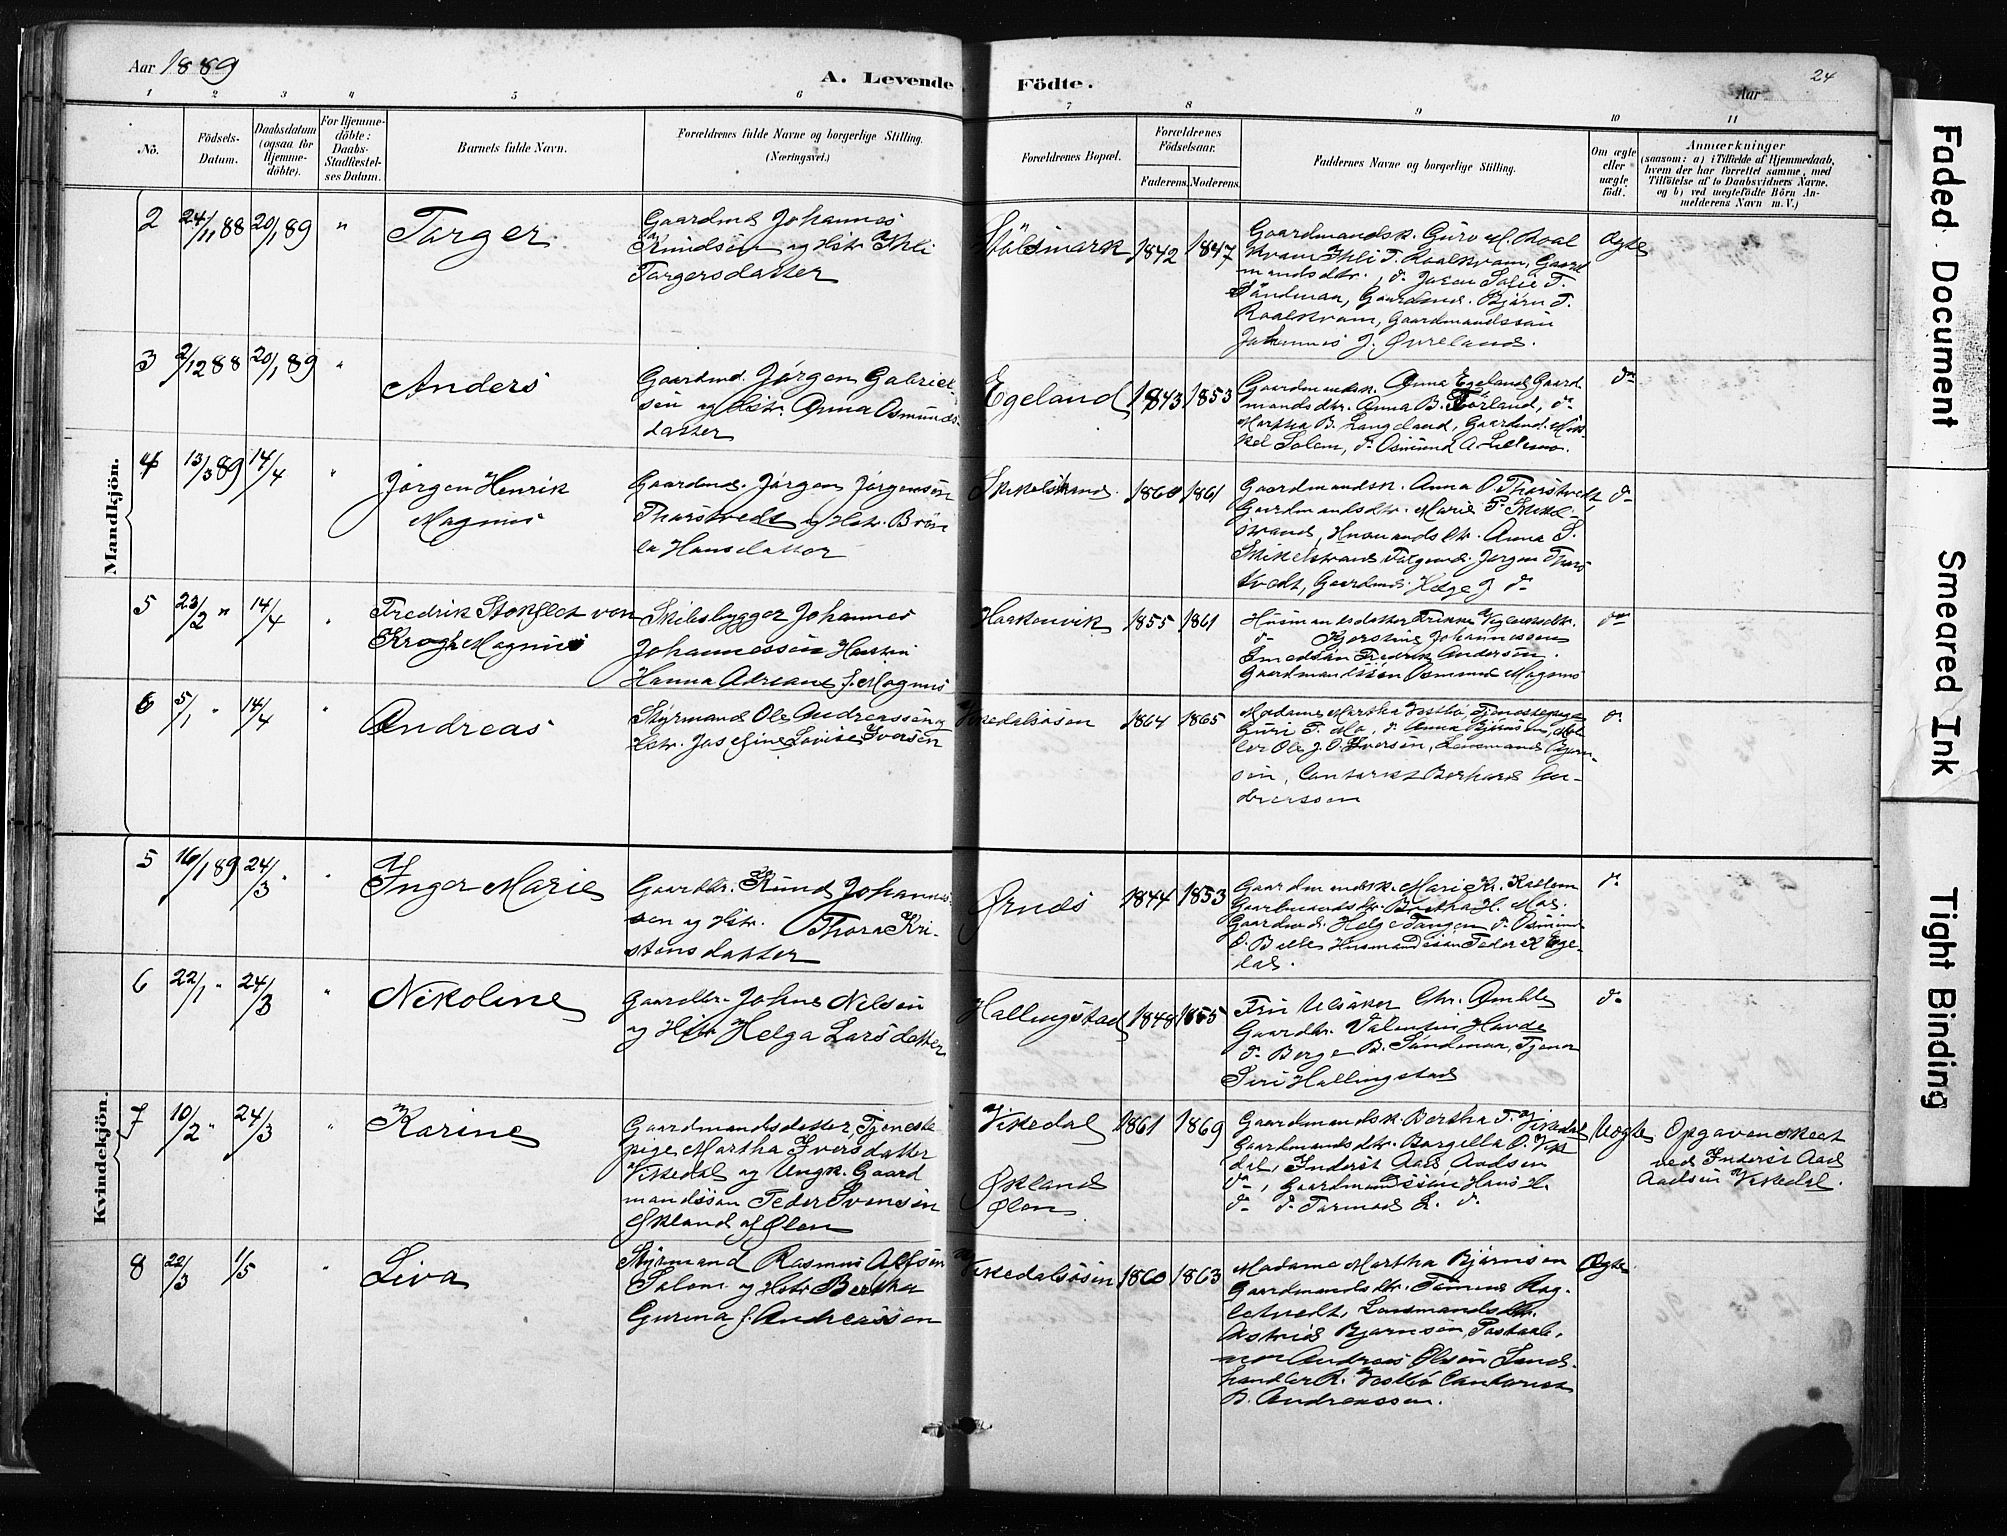 Aar 1889
A. Levende
Födte.
24
Aar
1 2 3 4 5 6 7 8 9 10 11
No.
Födsels-
Datum.
Daabsdatum
(ogsaa for
Hjemme-
döbte).
For Hjemme-
döbte:
Daabs-
Stadfæstel-
ses Datum.
Barnets fulde Navn.
Forældrenes fulde Navne og borgerlige Stilling.
(Næringsvei.)
Forældrenes Bopæl.
Forældrenes
Födselsaar.
Faderens. Moderens.
Faddernes Navne og borgerlige Stilling.
Om ægte
eller
uægte
födt.
Anmærkninger
(saasom: a) i Tilfælde af Hjemmedaab,
hvem der har forrettet samme, med
Tilföielse af to Daabsvidners Navne.
og b) ved uegtefödte Börn An-
melderens Navn m. V.)
Mandkjön.
2 24/11 88 20/1 89 " Torger
Gaardmd Johannes
Knudsön og Hstr Iheli
Torgersdatter
Stölsmark 1842 1847
Gaardmandsk. Guro M. Roal
kvam Iheli T. Roalkvam, Gaard
mandsdtr., do Joren Sofie T.
Söndenaa, Gaardmd. Björn T.
Roalkvam, Gaardmandssön
Johannes J. Øvreland.
Ægte
3 2/12 88 20/1 89 " Anders
Gaardmd. Jörgen Gabriel-
sön og Hstr. Anna Osmunds
datter
Egeland 1843 1853
Gaardmandsk. Anna Egeland Gaard
mandsdtr. Anna B. Törland, do
Martha B. Langeland, Gaardmd. Mik-
kel Solem, do Osmund A.
do
4 13/3 89 14/4 " Jörgen Henrik
Magnus
Gaardmd. Jörgen Jörgensön
Thorstvedt og Hstr.
Hansdatter
1860 1861
Gaardmandsk. Anna O. Thorstvedt,
Gaardmandsdtr. Marie P.
strand, Husmandsdtr. Anna S.
Jörgen Thors
tvedt, Gaardmd. Helge J do
do
5 23/2 " 14/4 " Fredrik Stokflet von
Krogh Magnus
Skibsbygger Johannes
Johannessön Hustru
Hanna Adriane f. Magnus
Haakonvik 1855 1861
Husmandsdatter
do Kjerstine Johannessen
Smedsön Fredrik Andersön.
Gaardmandssön Osmund Magnus
do
6 5/1 " 14/4 " Andreas
Styrmand Ole Andreassön og
Hstr. Josefine Lovise Iversön
Vikedalsösen 1864 1865
Madame Martha Vestbö, Tjenestepige
Guri T. Mo, do Anna Björnsön,
ler Ole J. O. Iversön, Lensmand Bjørn-
sön, Contorist Berhard An-
dreassen
do
Kvindekjön.
5 16/1 89 24/3 " " Inger Marie
Gaardbr. Knud Johannes-
sen og Hstr. Thora Kri-
stensdatter
Ørnes 1844 1853
Gaardmandsk. Marie K.
Gaardmandsdtr. Bertha H.
Gaardmd. Helge Tangen do Osmund
O. Husmandssön Peder K Ege
dal.
do
6 22/1 " 24/3 " Nikoline
Gaardbr. Johne Nilsön
og Hstr Helga Larsdatter
Hallingstad 1848 1855
Fru Ulsaker Chr. Amble
Gaardbr. Valentin Havde
do Berge B. Söndenaa, Tjener
Siri Hallingstad
do
7 10/2 " 24/3 " Karine
Gaardmandsdatter, Tjeneste
pige Martha Iversdatter
Vikedal og Ungk. Gaard
mandssön Peder Svensön
Økland af Ølen
Vikedal
Økland
Ølen
1861 1869
Gaardmandsk. Bertha T. Vikedal
Gaardmandsdtr. Borgella O. Vike
dal, Inderst Aad Aadsen
do, Gaardmandssön Hans H.
do do Tormod L. do
Uegte
Opgaven skeet
ved Inderst Aad
Aadsön Vikedal.
8 22/3 1/5 " Liva
Styrmand Rasmus Alfsön
Solem og Hstr Bertha
Gurina f. Andreassen
Vikedalsösen 1860 1863
Madame Martha Björnsen
Gaardmandsdtr. Tomine Rog-
letvedt, Lensmandsdtr.
Astrid Bjørnsön, Postaab-
ner Andreas Olsön Land-
handler R. Vestbö Contorist
B. Andreassen.
Ægte
Faded Document
Smeared Ink
Tight Binding